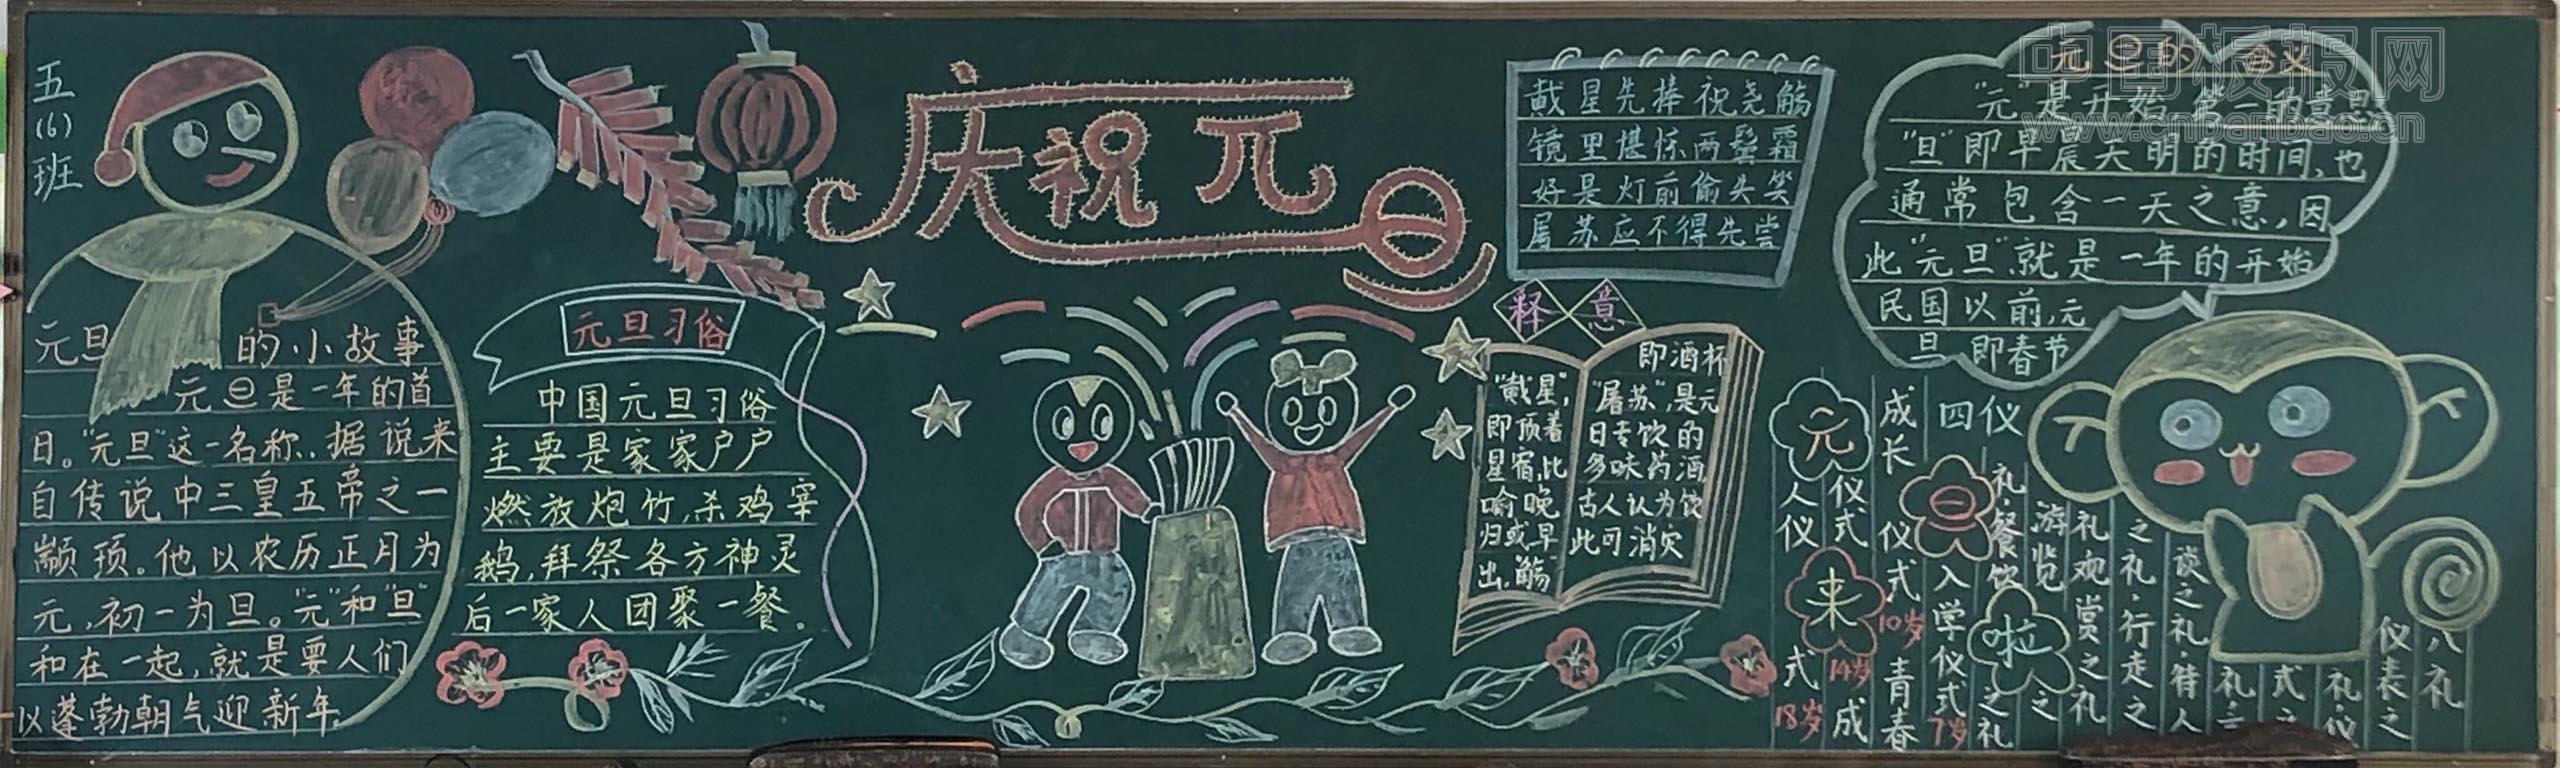 五
(6)
班
元旦的小故事
元旦是一年的首
日。"元旦"这一名称,据说来
自传说中三皇五帝之一
颛顼。他以农历正月为
元,初一为旦。"元"和"旦"
和在一起,就是要人们
以蓬勃朝气迎新年
元旦习俗
中国元旦习俗
主要是家家户户
燃放炮竹,杀鸡宰
鹅,拜祭各方神灵
后一家人团聚一餐。
庆祝元旦
戴星先捧祝尧觞
镜里堪惊两鬓霜
好是灯前偷失笑
屠苏应不得先尝
释意
"戴星",
即顶着
星宿,比
喻晚
归或早
出,觞
即酒杯
"屠苏",是元
日专饮的
多味药酒
古人认为饮
此可消灾
元旦的含义
"元"是开始,第一的意思
"旦"即早晨天明的时间,也
通常包含一天之意,因
此"元旦"就是一年的开始
民国以前,元
旦即春节
元旦来啦
八礼
四仪
仪表之
礼·仪
式之
礼·言
谈之礼·待人
之礼·行走之
礼观赏之礼
游览之
礼·餐饮之礼
入学仪式7岁
成长仪式10岁
青春仪式14岁
成人仪式18岁
中国板报网
www.cnbanbao.cn